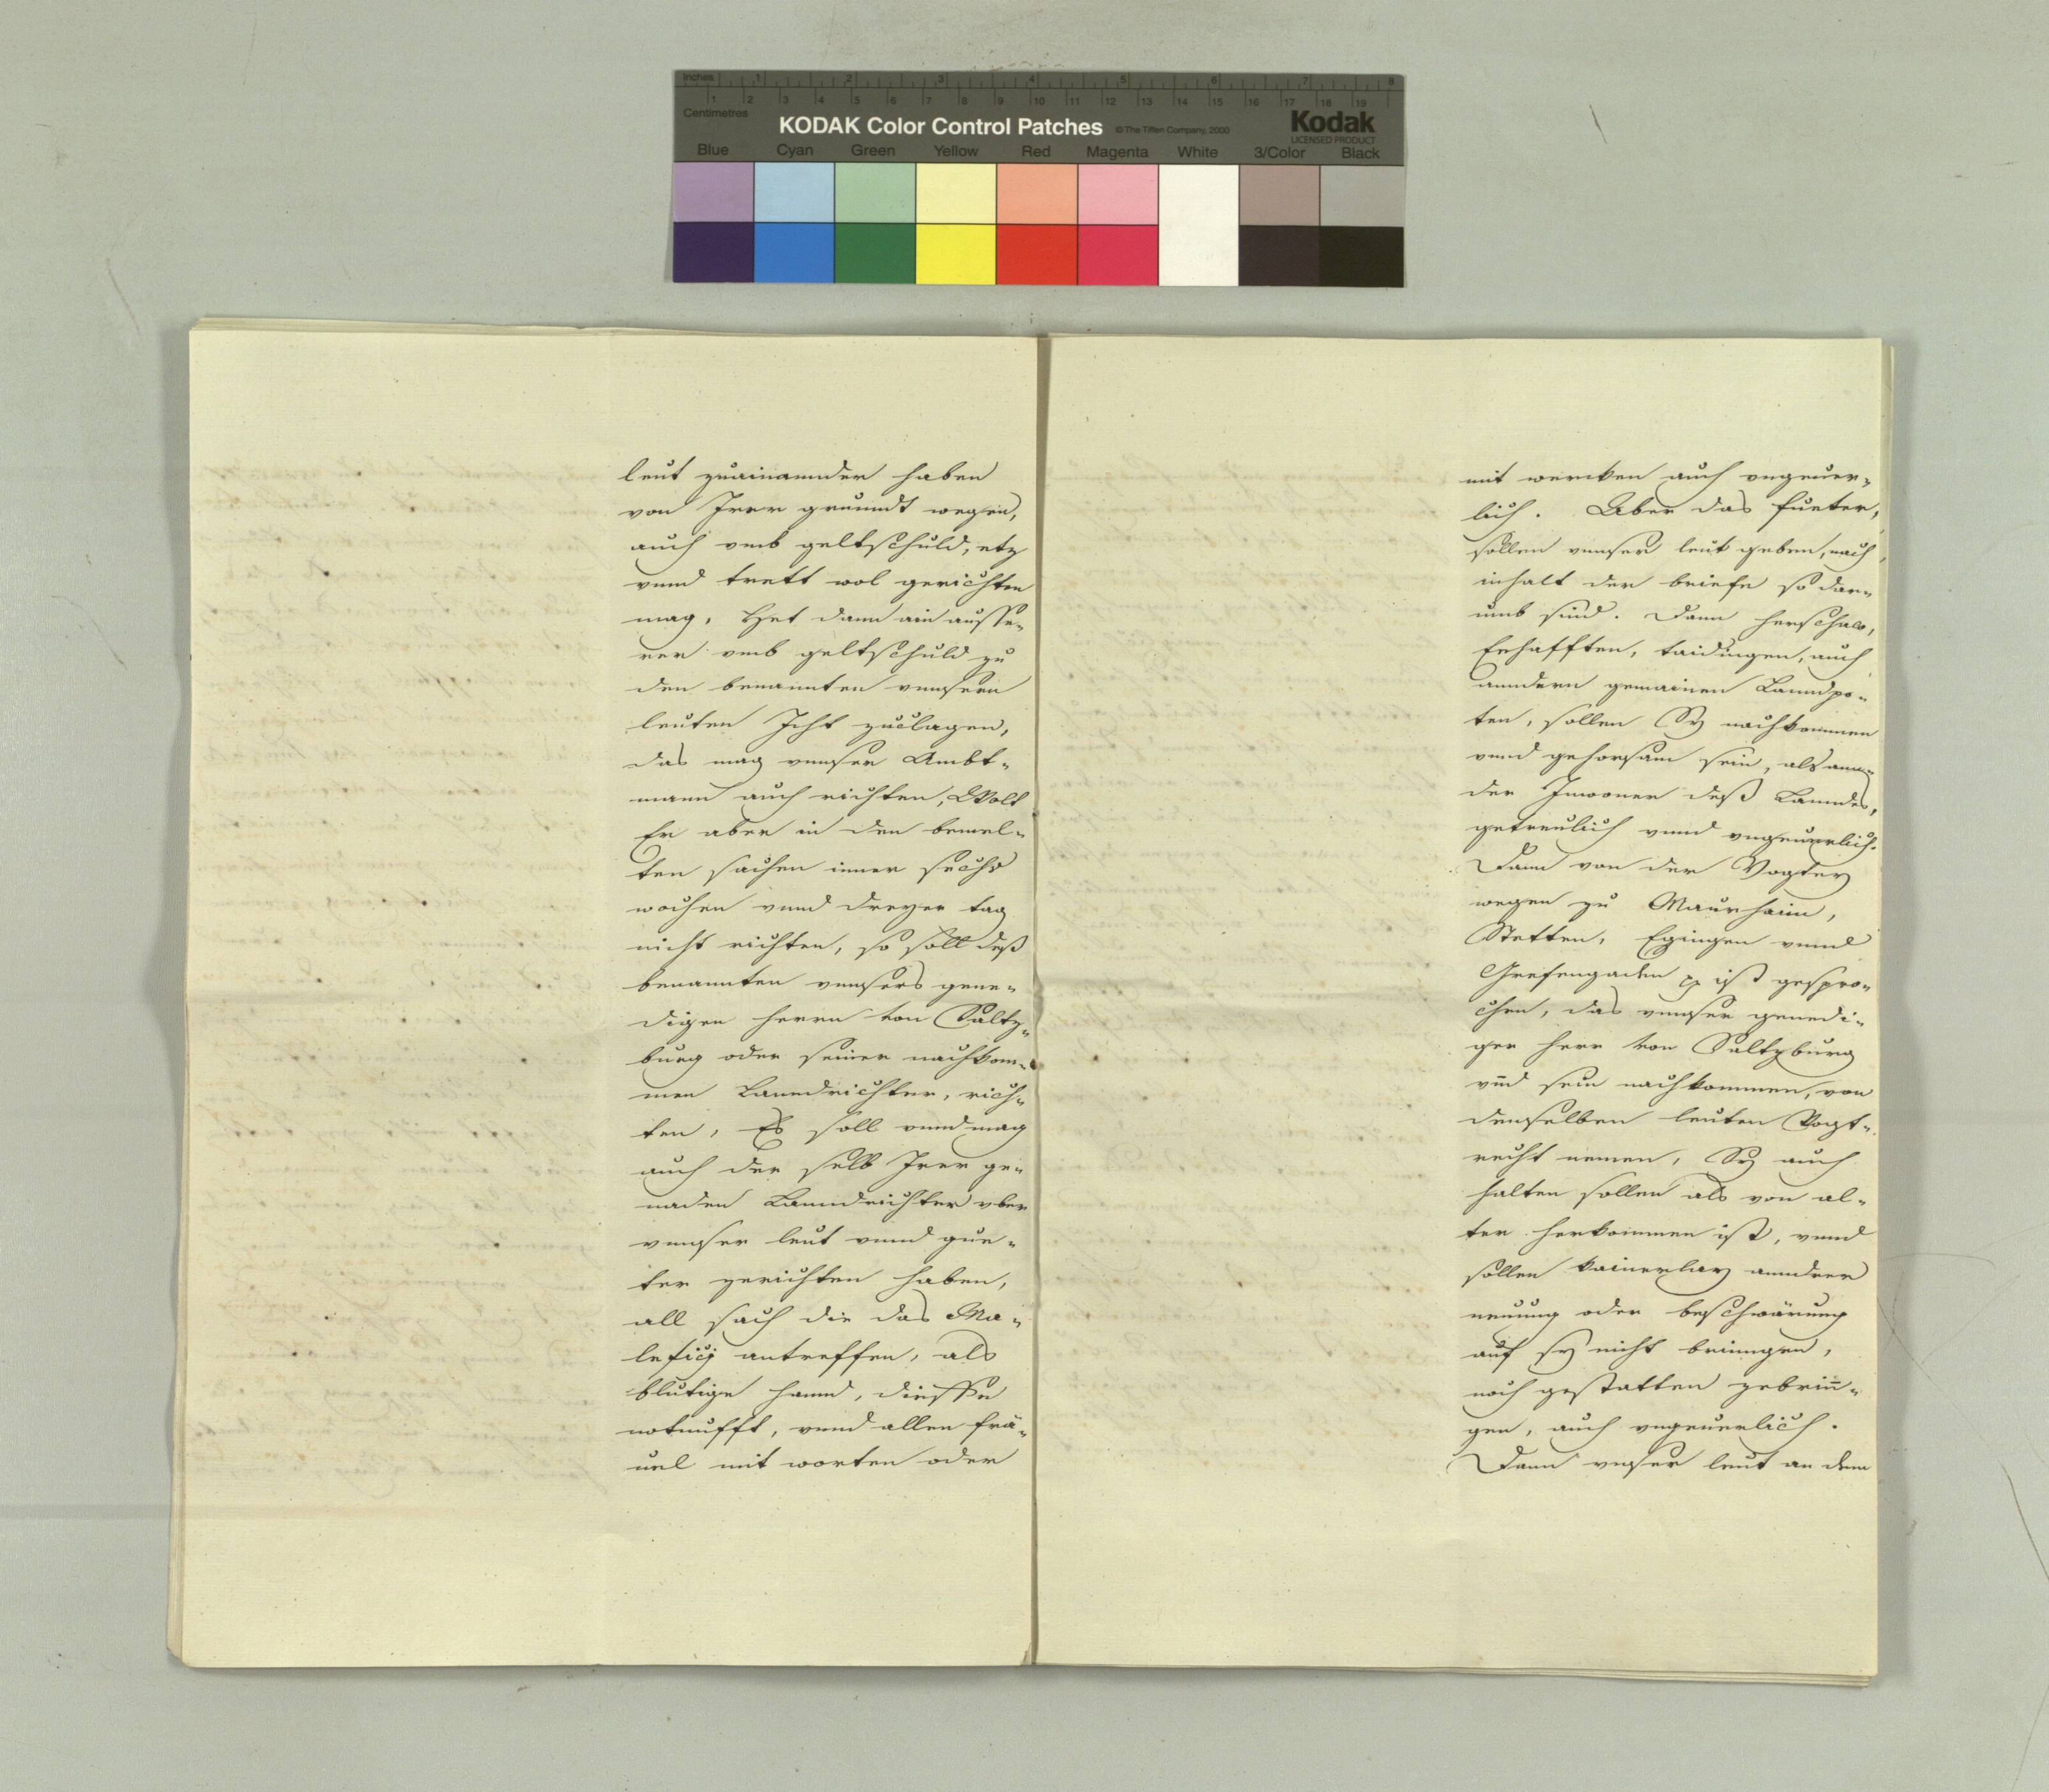 Inches 1 2 3 4 5 6 7 8
1 2 3 4 5 6 7 8 9 10 11 12 13 14 15 16 17 18 19
Centimetres
KODAK Color Control Patches © The Tiffen Company, 2000 Kodak
LICENSED PRODUCT
Blue Cyan Green Yellow Red Magenta White 3/Color Black
leut zuainannder haben
von Irer gruundt wegen,
auch vmb geltschuld, etz
vnnd trett wol gerichten
mag, Het dann ain ausse„
rer vmb geltschuld zu
den benannten vnnsern
leuten Icht zuclagen,
das mag vnnser Ambt„
mann auch richten, Wolt
Er aber in den bemel„
ten sachen inner sechs
wochen vnnd dreyer tag
nicht richten, so soll deß
benannten vnnsers gene„
digen herrn von Saltz„
burg oder seiner nachkom„
men Lanndrichter, rich„
ten, Es soll vnnd mag
auch der selb Irer ge„
naden Lanndrichter vber
vnnser leut vnnd gue„
ter zerichten haben,
all sach die das Ma„
lefitzj antreffen, als
blutige hannd, diessen
notnufft, vnnd allen frä„
uel mit worten oder
mit wercken auch vngeuer„
lich. Aber das fueter,
sollen vnnser leut geben, nach
inhalt der briefe so dar„
umb sind. Dann herschaw,
Eehafften, taidingen, auch
anndern gemainen Lanndpo„
ten, sollen Sy nachkommen
vnnd gehorsam sein, als ann„
der Innwoner deß Lanndes,
getreulich vnnd vngeuerlich.
Dann von der Vogtey
wegen zu Maurhaim,
Stetten, Egingen vnnd
Grefengaden ist gespro„
chen, das vnnser genedi„
ger herr von Saltzburg
vnd sein nachkommen, von
denselben leuten Vogt„
recht nemen, Sy auch
halten sollen als von al„
ter herkommen ist, vnnd
sollen kainerlay annder
neuung oder beschwärung
auf sy nicht bringen,
noch gestatten zebrin„
gen, auch vngeuerlich.
Dann vnser leut an dem